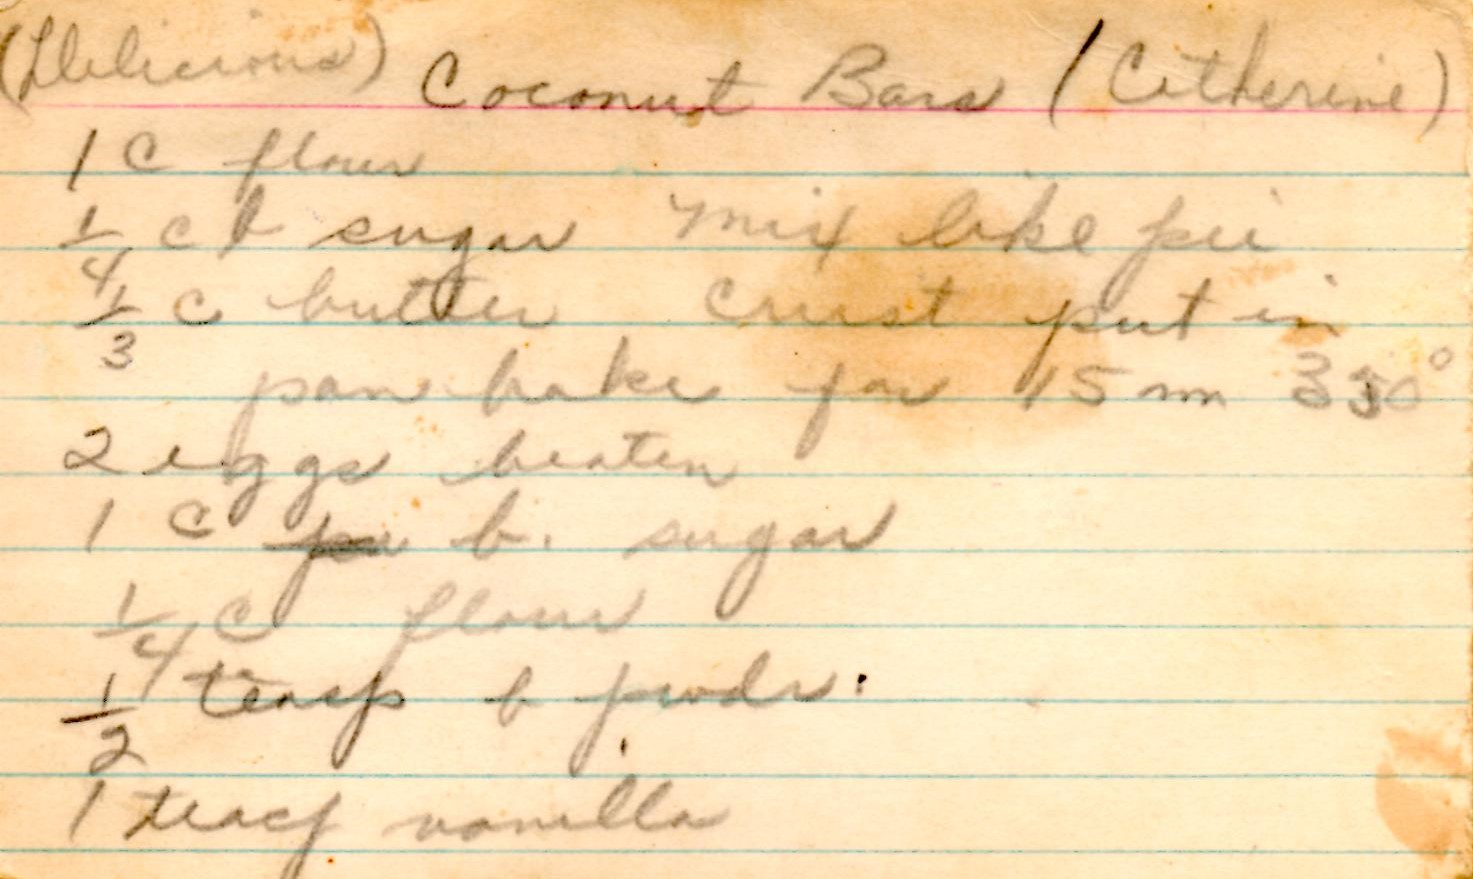 (Delicious) Coconut Bars (Catherine)
1 C flour
1/4 c b sugar mix like pie
1/3 c butter crust put in
pan bake for 15 mn 350°
2 eggs beaten
1 C b. sugar
1/4 C flour
1/2 teasp b powdr.
1 teasp vanilla